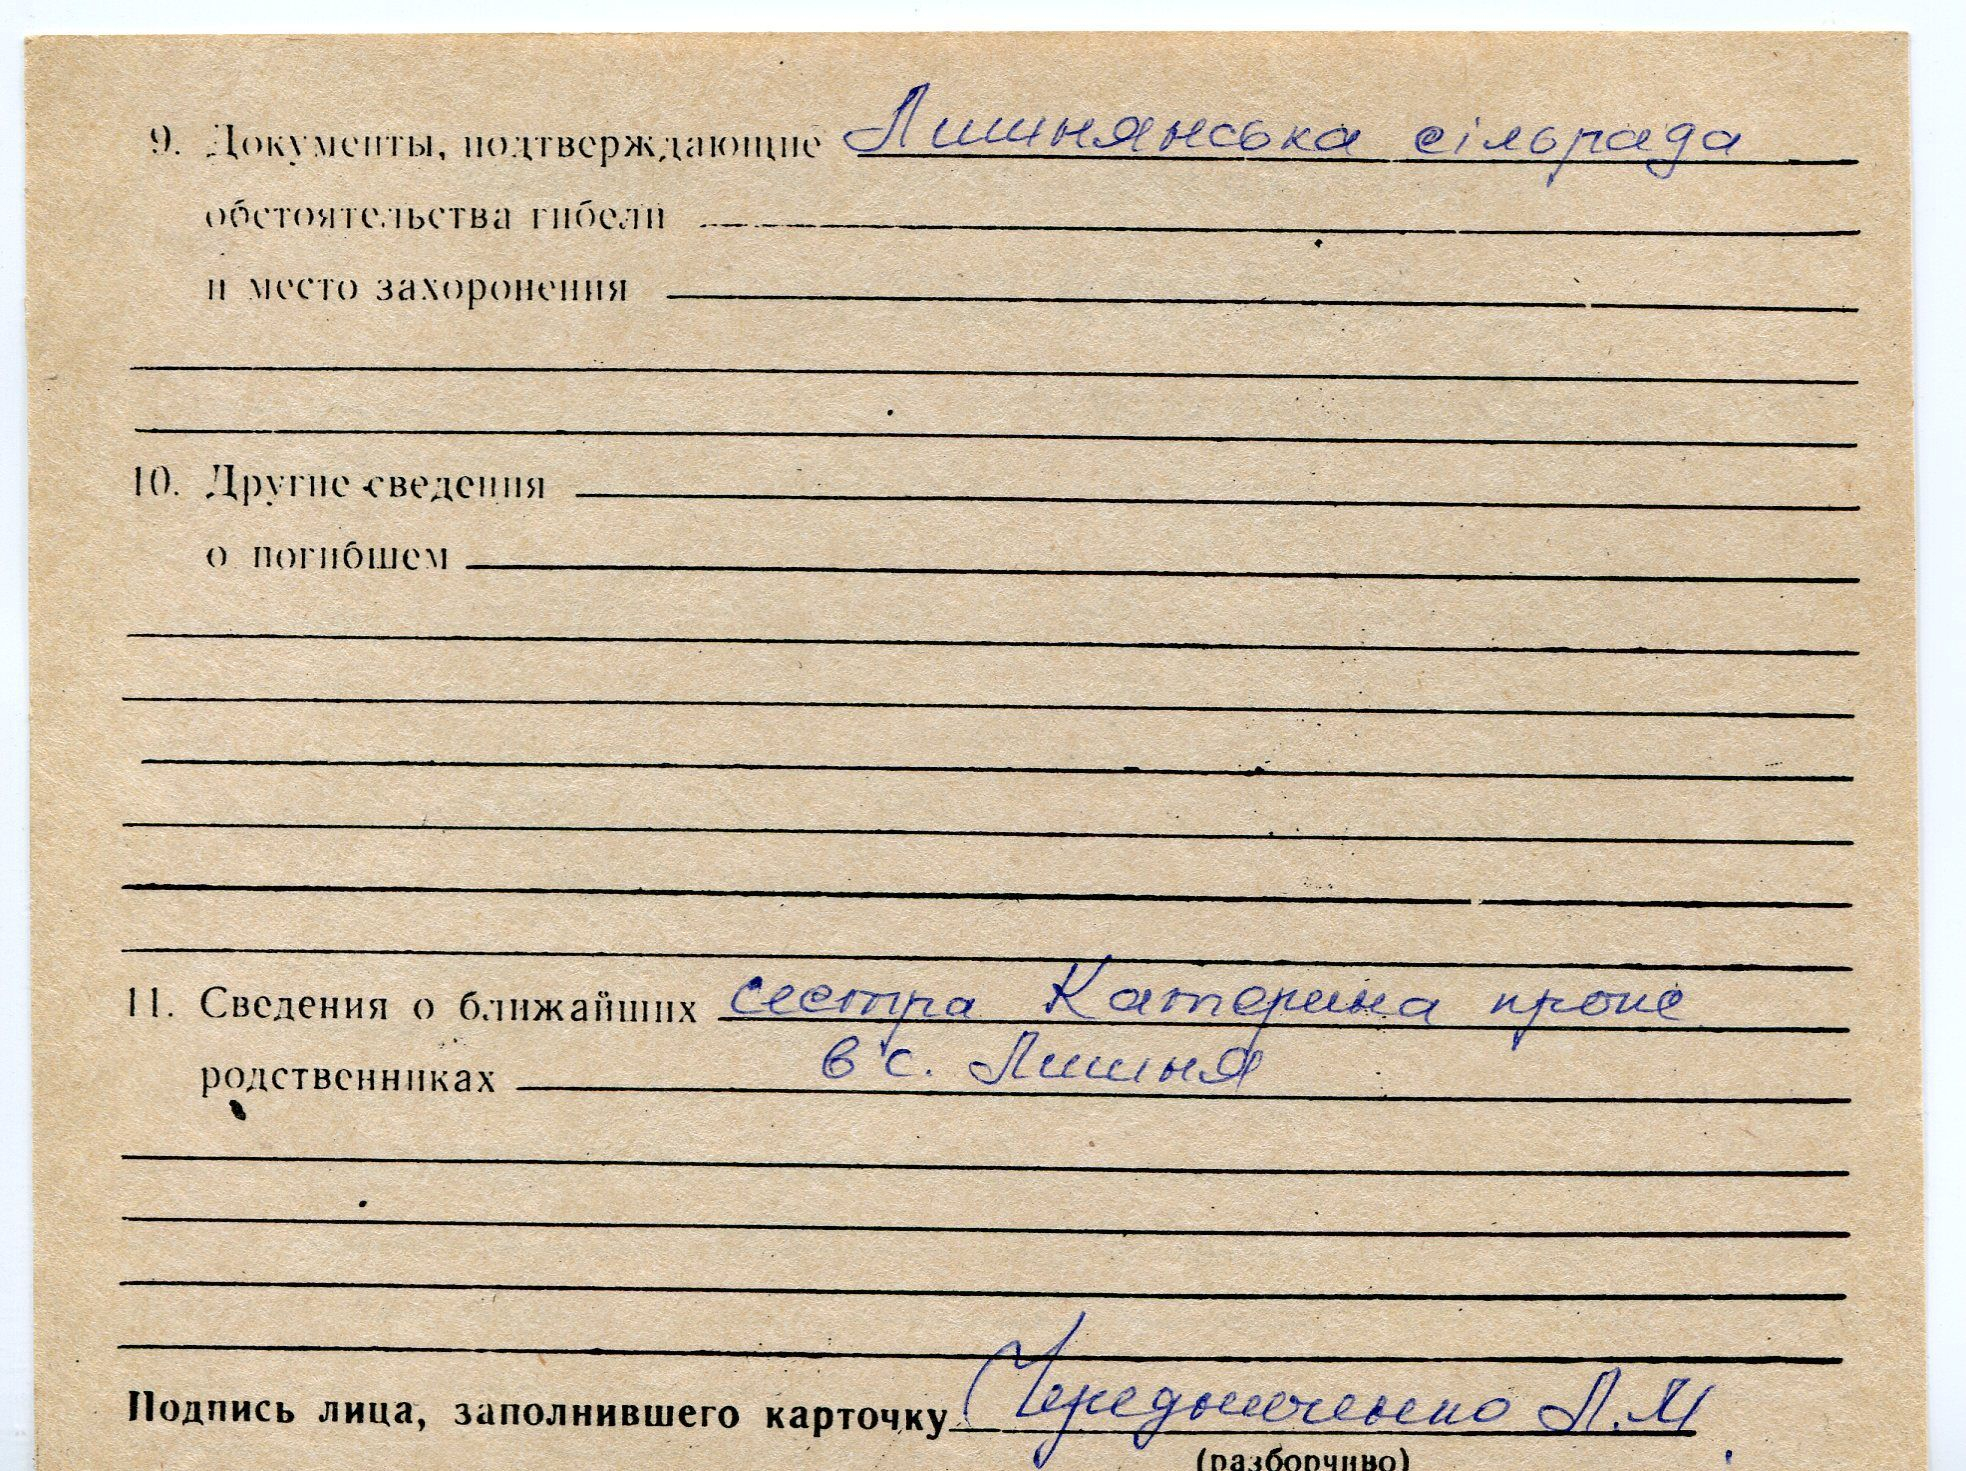 9. Документы, подтверждающие Лишнянська сільрада
обстоятельства гибели
и место захоронения
10. Другие сведения
о погибшем
11. Сведения о ближайших сестра Катерина прож
родственниках в с. Лишня
Подпись лица, заполнившего карточку Чередниченко Л.М
(разборчиво)